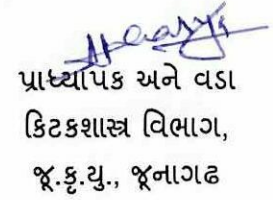 પ્રાધ્યાપક અને વડા
કિટકશાસ્ત્ર વિભાગ,
જૂ.કૃ.યુ., જૂનાગઢ